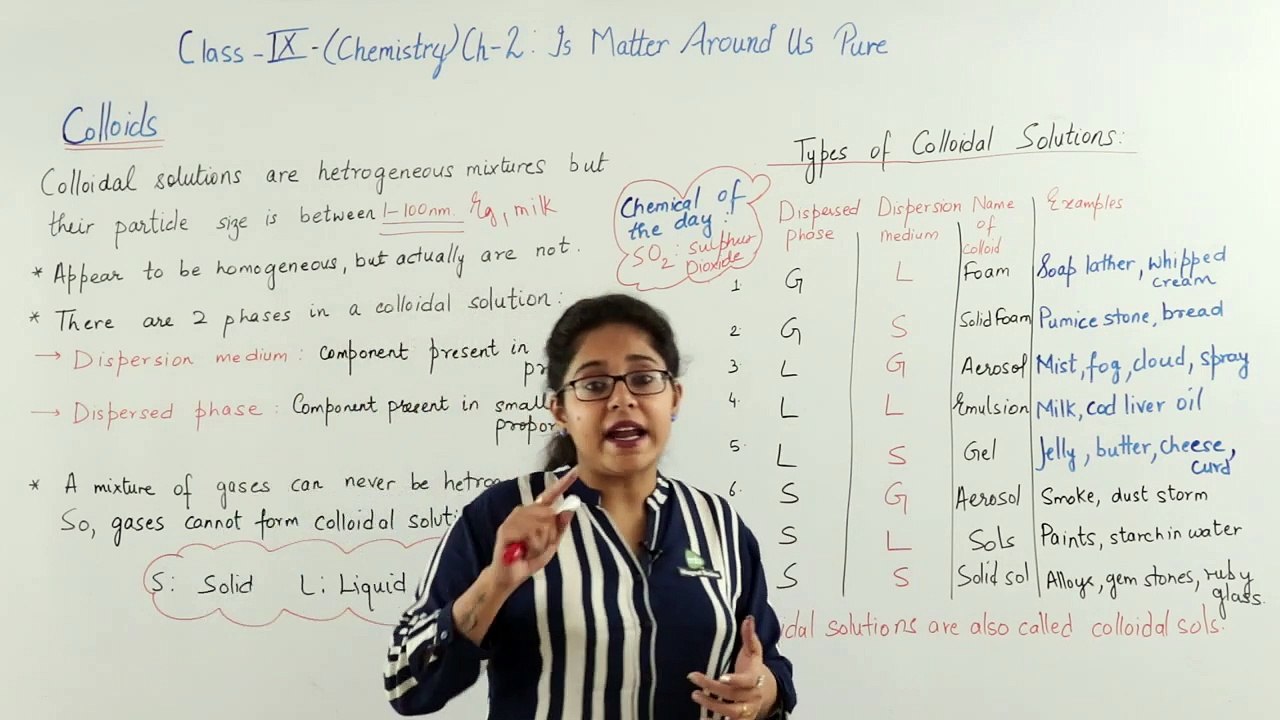 Class-IX-(Chemistry) Ch-2: Is Matter Around Us Pure
Colloids
Colloidal solutions are hetrogeneous mixtures but
their particle size is between 1-100nm. Eg, milk
* Appear to be homogeneous, but actually are not.
* There are 2 phases in a colloidal solution:
→ Dispersion medium: component present in
→ Dispersed phase: Component present in small
propor
* A mixture of gases can never be hetrog
So, gases cannot form colloidal soluti
S: Solid L: Liquid
Chemical of
the day:
SO2: sulphur
Dioxide
Types of Colloidal Solutions:
Dispersed phase Dispersion medium Name of colloid Examples
1. G L Foam Soap lather, whipped cream
2. G S Solid Foam Pumice stone, bread
3 L G Aerosol Mist, fog, cloud, spray
4. L L Emulsion Milk, cod liver oil
5. L S Gel Jelly, butter, cheese, curd
6. S G Aerosol Smoke, dust storm
S L Sols Paints, starch in water
S S Solid sol Alloys, gem stones, ruby glass.
idal solutions are also called colloidal sols.